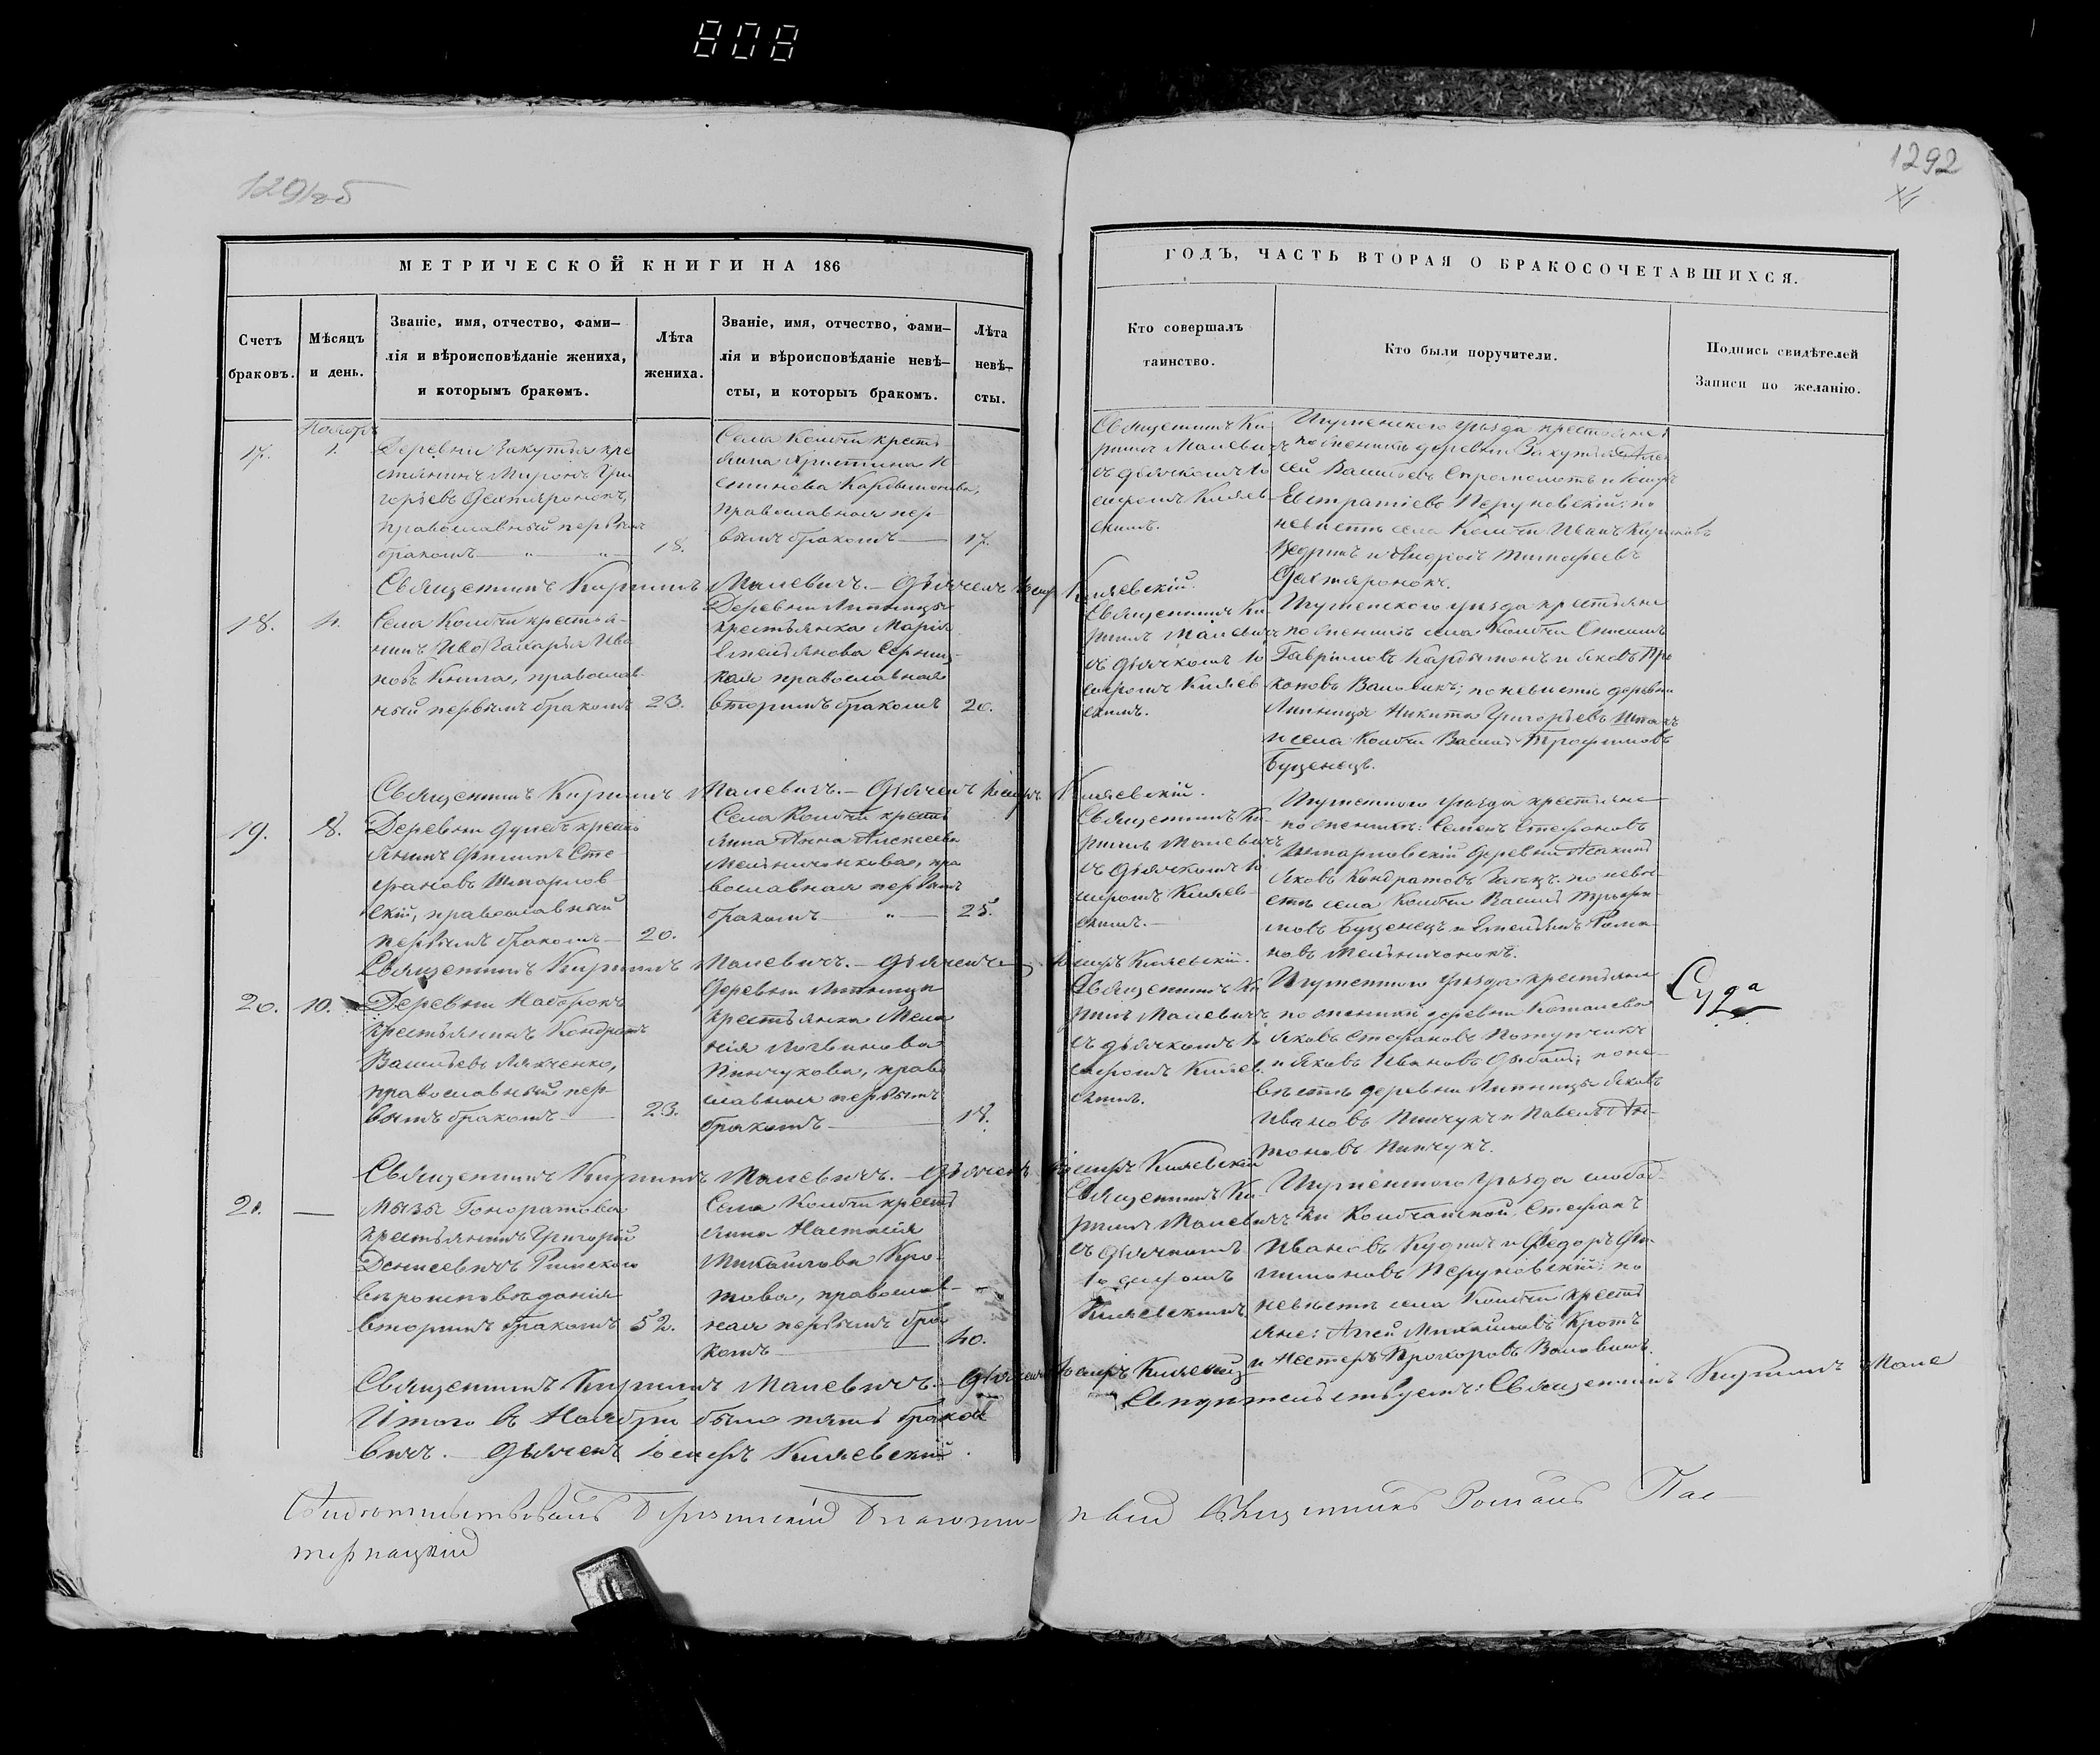 808
1291об
1292
МЕТРИЧЕСКОЙ КНИГИ НА 186
ГОДЪ, ЧАСТЬ ВТОРАЯ О БРАКОСОЧЕТАВШИХСЯ.
Счетъ
браковъ.
Мѣсяцъ
и день.
Званіе, имя, отчество, фами-
лія и вѣроисповѣданіе жениха,
и которымъ бракомъ.
Лѣта
жениха.
Званіе, имя, отчество, фами-
лія и вѣроисповѣданіе невѣ-
сты, и которыъ бракомъ.
Лѣта
невѣ-
сты.
Кто совершалъ
таинство.
Кто были поручители.
Подпись свидѣтелей
Записи по желанію.
17.
Ноября
1.
Деревни Закутья кре
стьянинъ Миронъ Гри
горьевъ
православный первым
бракомъ
18.
Села Колбчи кресть
янка Христина
православная пер
вымъ бракомъ
17.
Священникъ Ки
риллъ Малевичъ
съ дьячкомъ Іо
сифомъ Княжев
скимъ.
Игуменскаго уѣзда крестьяне
по женихѣ деревни Закутья Але
сей Васильевъ и Іосифъ
Евстратіевъ Перуновскій; по
невѣстѣ села Колбчи Иванъ Кириловъ
и Андрей Тимофеевъ
Священникъ Кириллъ Малевичъ. — Дьячекъ Іосифъ Княжевскій.
18.
4.
Села Колбчи крестья-
нинъ Захарья Ива
новъ Книга, православ-
ный первымъ бракомъ
23.
Деревни Липницы
крестьянка Марія
Емельянова
кая православная
вторымъ бракомъ
20.
Священникъ Ки
риллъ Малевичъ
съ дьячкомъ Іо
сифомъ Княжев
скимъ.
Игуменского уѣзда крестьяне
по женихѣ села Колбчи
Гавриловъ Кардымонъ и Яковъ Про
коповъ; по невѣстѣ деревни
Липницы Никита Григорьевъ
и села Колбчи Василь Трофимовъ
Буценецъ.
Священникъ Кириллъ Малевичъ. — Дьячекъ Іосифъ Княжевскій.
19.
8.
Деревни кресть
янинъ Филиппъ Сте
фановъ Шпарлов
скій, православный
первымъ бракомъ
20.
Села Колбчи кресть
янка Анна Алексеева
Мельничонкова, пра
вославная первымъ
бракомъ
25.
Священникъ Ки
риллъ Малевичъ
съ дьячкомъ Іо
сифомъ Княжев
скимъ.
Игуменскаго уѣзда крестьяне
по женихѣ: Семенъ Стефановъ
Шпарловскій деревни
Яковъ Кондратовъ по невѣ-
стѣ села Колбчи Василь Трофи
мовъ Буценецъ и Емельянъ Рома
новъ Мельничонокъ.
Священникъ Кириллъ Малевичъ. — Дьячекъ Іосифъ Княжевскій.
20.
10.
Деревни Наборокъ
крестьянинъ Кондратъ
Васильевъ Ляхченко,
православный пер-
вымъ бракомъ
23.
Деревни Липницы
крестьянка Мела
нія Логвинова
Пинчукова, право
славная первымъ
бракомъ
18.
Священникъ Ки
риллъ Малевичъ
съ дьячкомъ Іо
сифомъ Княжев.
скимъ.
Игуменскаго уѣзда крестьяне
по женихѣ деревни
Яковъ Стефановъ Потупчикъ
и Яковъ Ивановъ; по не-
вѣстѣ деревни Липницы Яковъ
Ивановъ Пинчукъ и Павелъ Ан-
тоновъ Пинчукъ.
Суда
Священникъ Кириллъ Малевичъ. — Дьячекъ Іосифъ Княжевскій
21.
—
Мызы Гоноратова
крестьянинъ Григорій
Денисевичъ Римскаго
вѣроисповѣданія
вторымъ бракомъ
52.
Села Колбчи кресть
янка Настасія
Михайлова Кро
това, православ-
ная первымъ бра
комъ
40.
Священникъ Ки
риллъ Малевичъ
съ дьячкомъ
Іосифомъ
Княжевскимъ
Игуменскаго уѣзда слобод-
ки Колбчанской, Стефанъ
Ивановъ и Федоръ Фи-
лимоновъ Перуновскій; по
невѣстѣ села Колбчи кресть
яне: Михайловъ Кротъ
и Нестеръ Прохоровъ
Священникъ Кириллъ Малевичъ. — Дьячекъ Іосифъ Княжевскій
Итого въ Ноябрѣ было пять браков
Свидѣтельствуемъ: Священникъ Кириллъ Мале
вичъ. — Дьячекъ Іосифъ Княжевскій.
Свидѣтельствовалъ Березинскій Благочин-
ный Священникъ Романъ Пас-
тернацкій